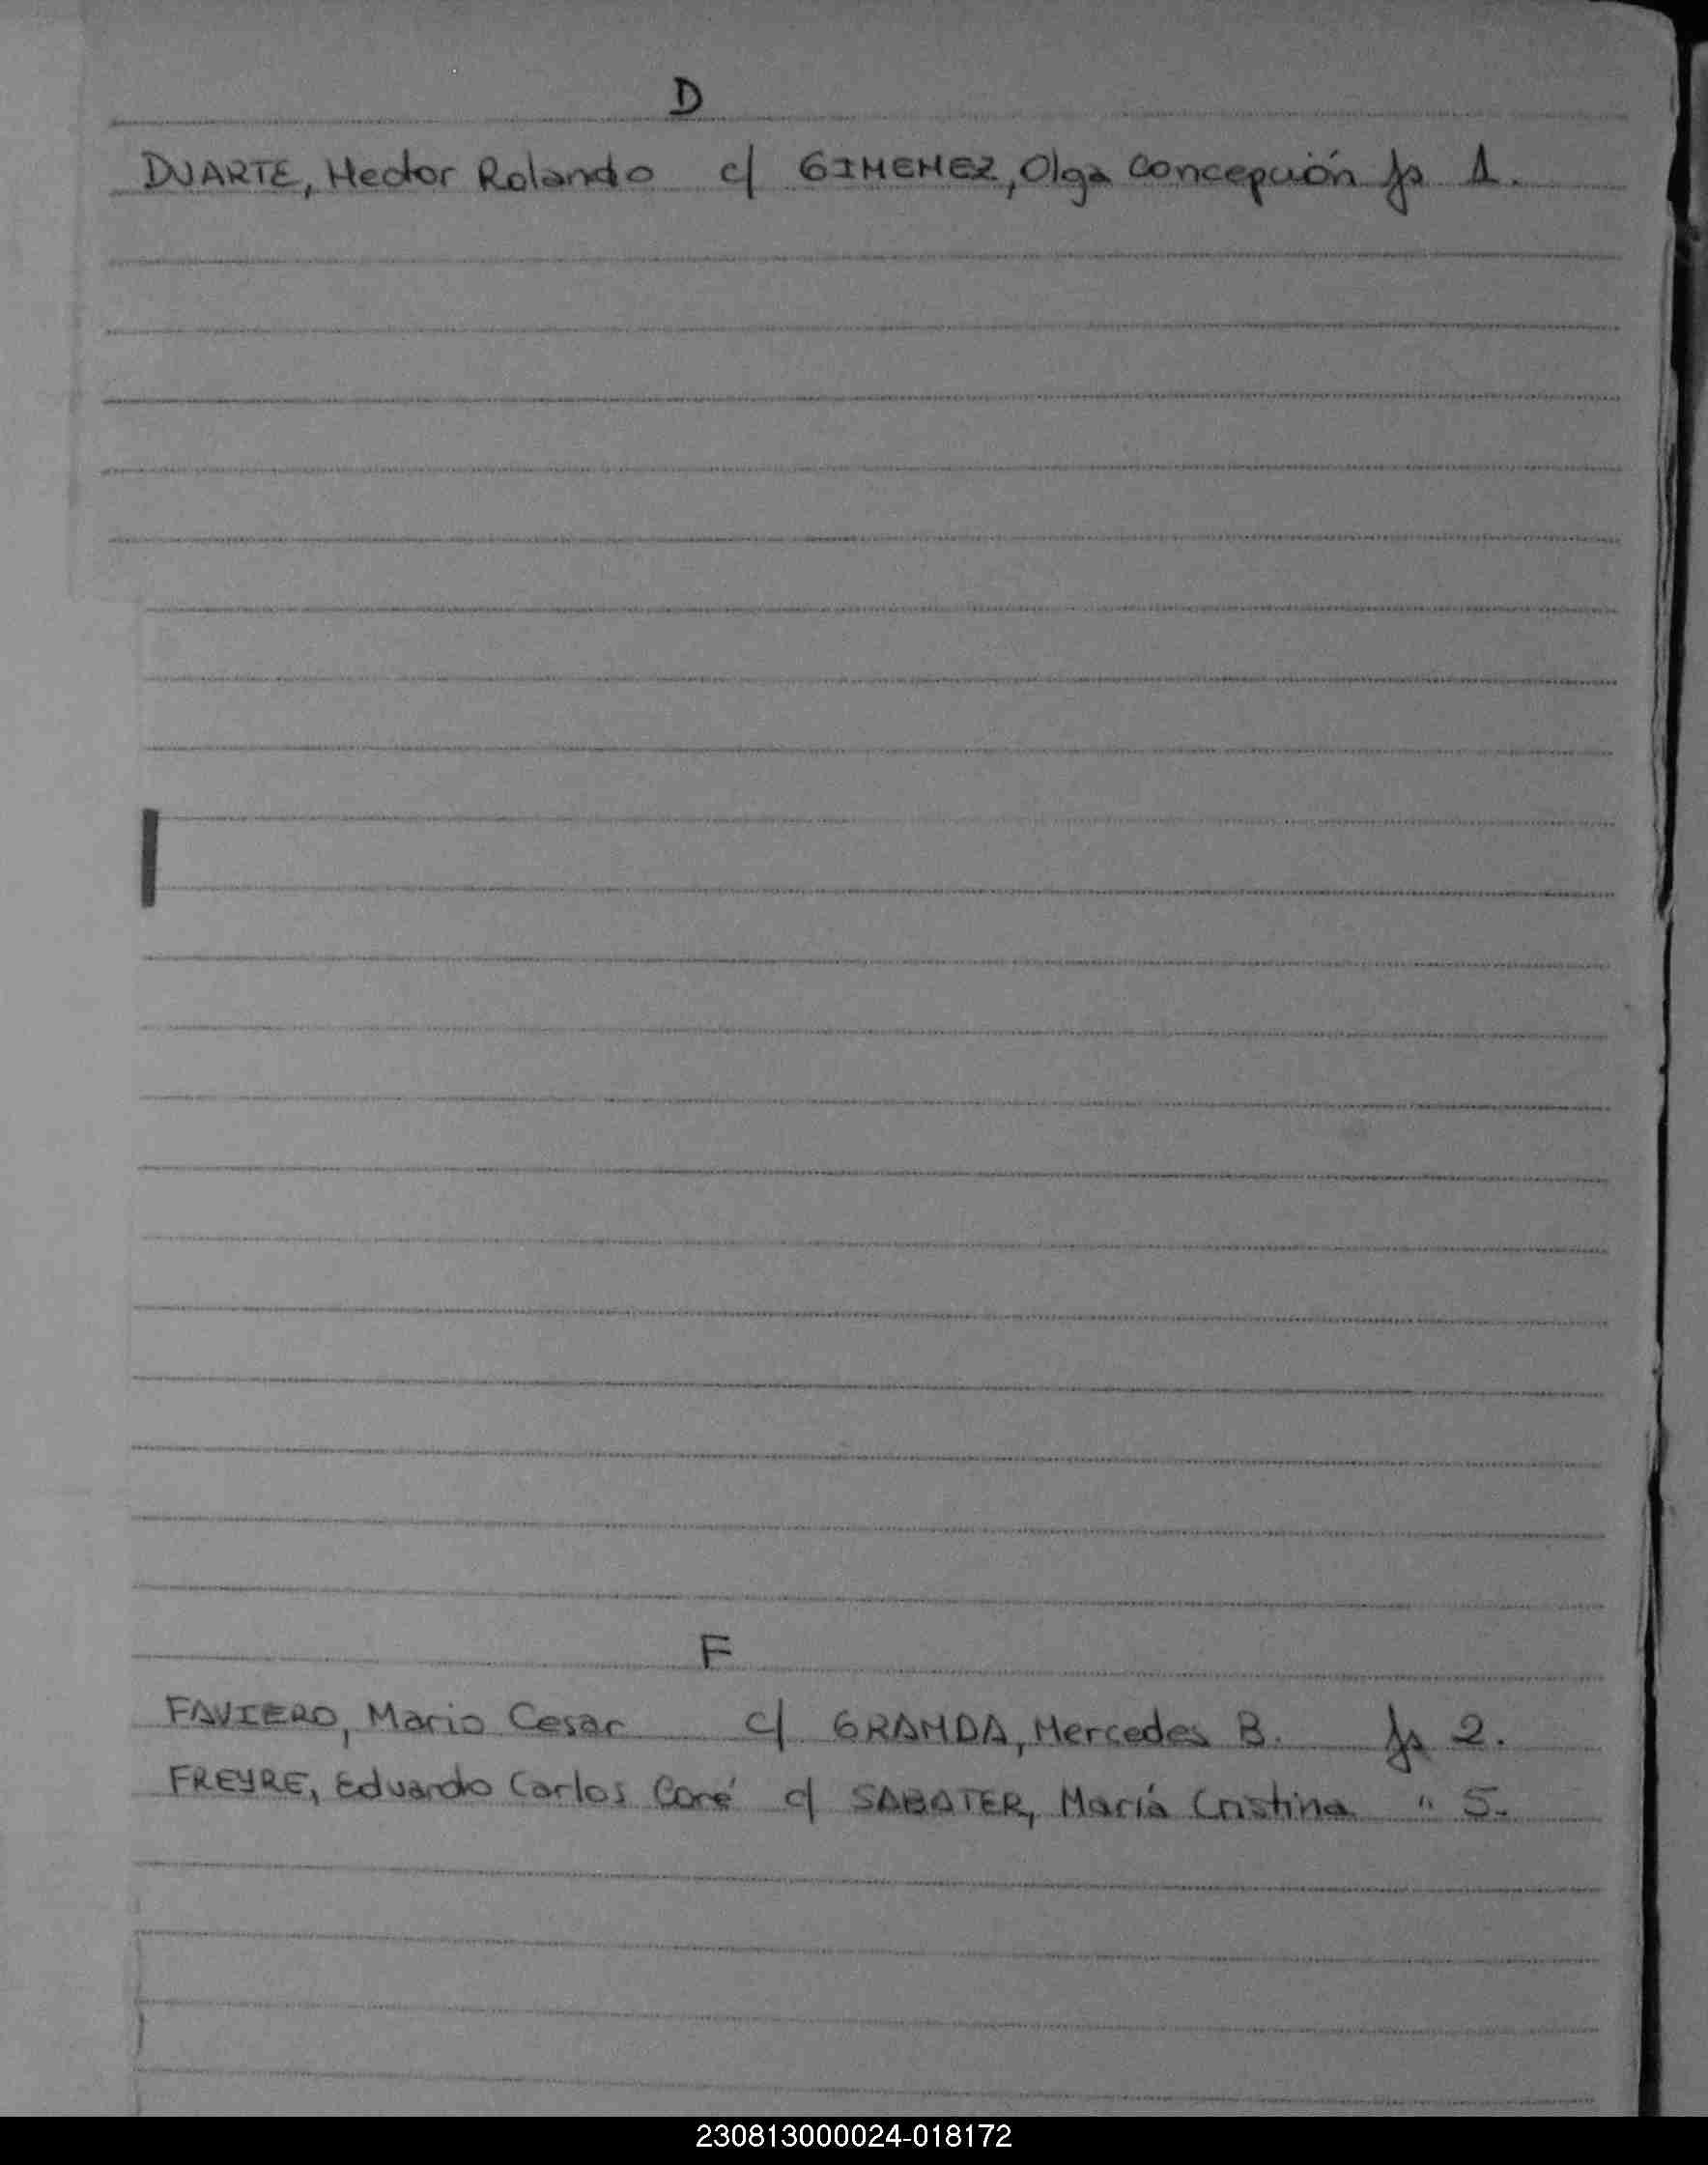 D
DUARTE, Hector Rolando c/ GIMENEZ, Olga Concepción fs 1.
F
FAVIERO, Mario Cesar c/ GRANDA, Mercedes B. fs 2.
FREYRE, Eduardo Carlos c/ SABATER, María Cristina " 5.
230813000024-018172